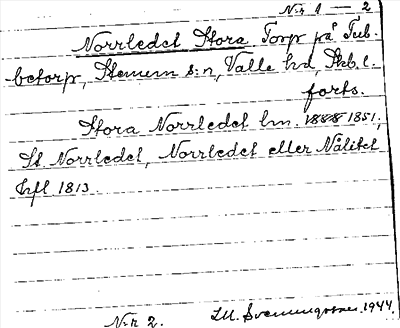 N:r 1 — 2
Norrledet Stora Torp på Tub-
betorp, Stenum s:n, Valle hd, Skb. l.
forts.
Stora Norrledet hm. 1888 1851,
St. Norrledet, Norrledet eller Nälitet
hfl 1813.
N:r 2. I.M. Svenungsson. 1944.